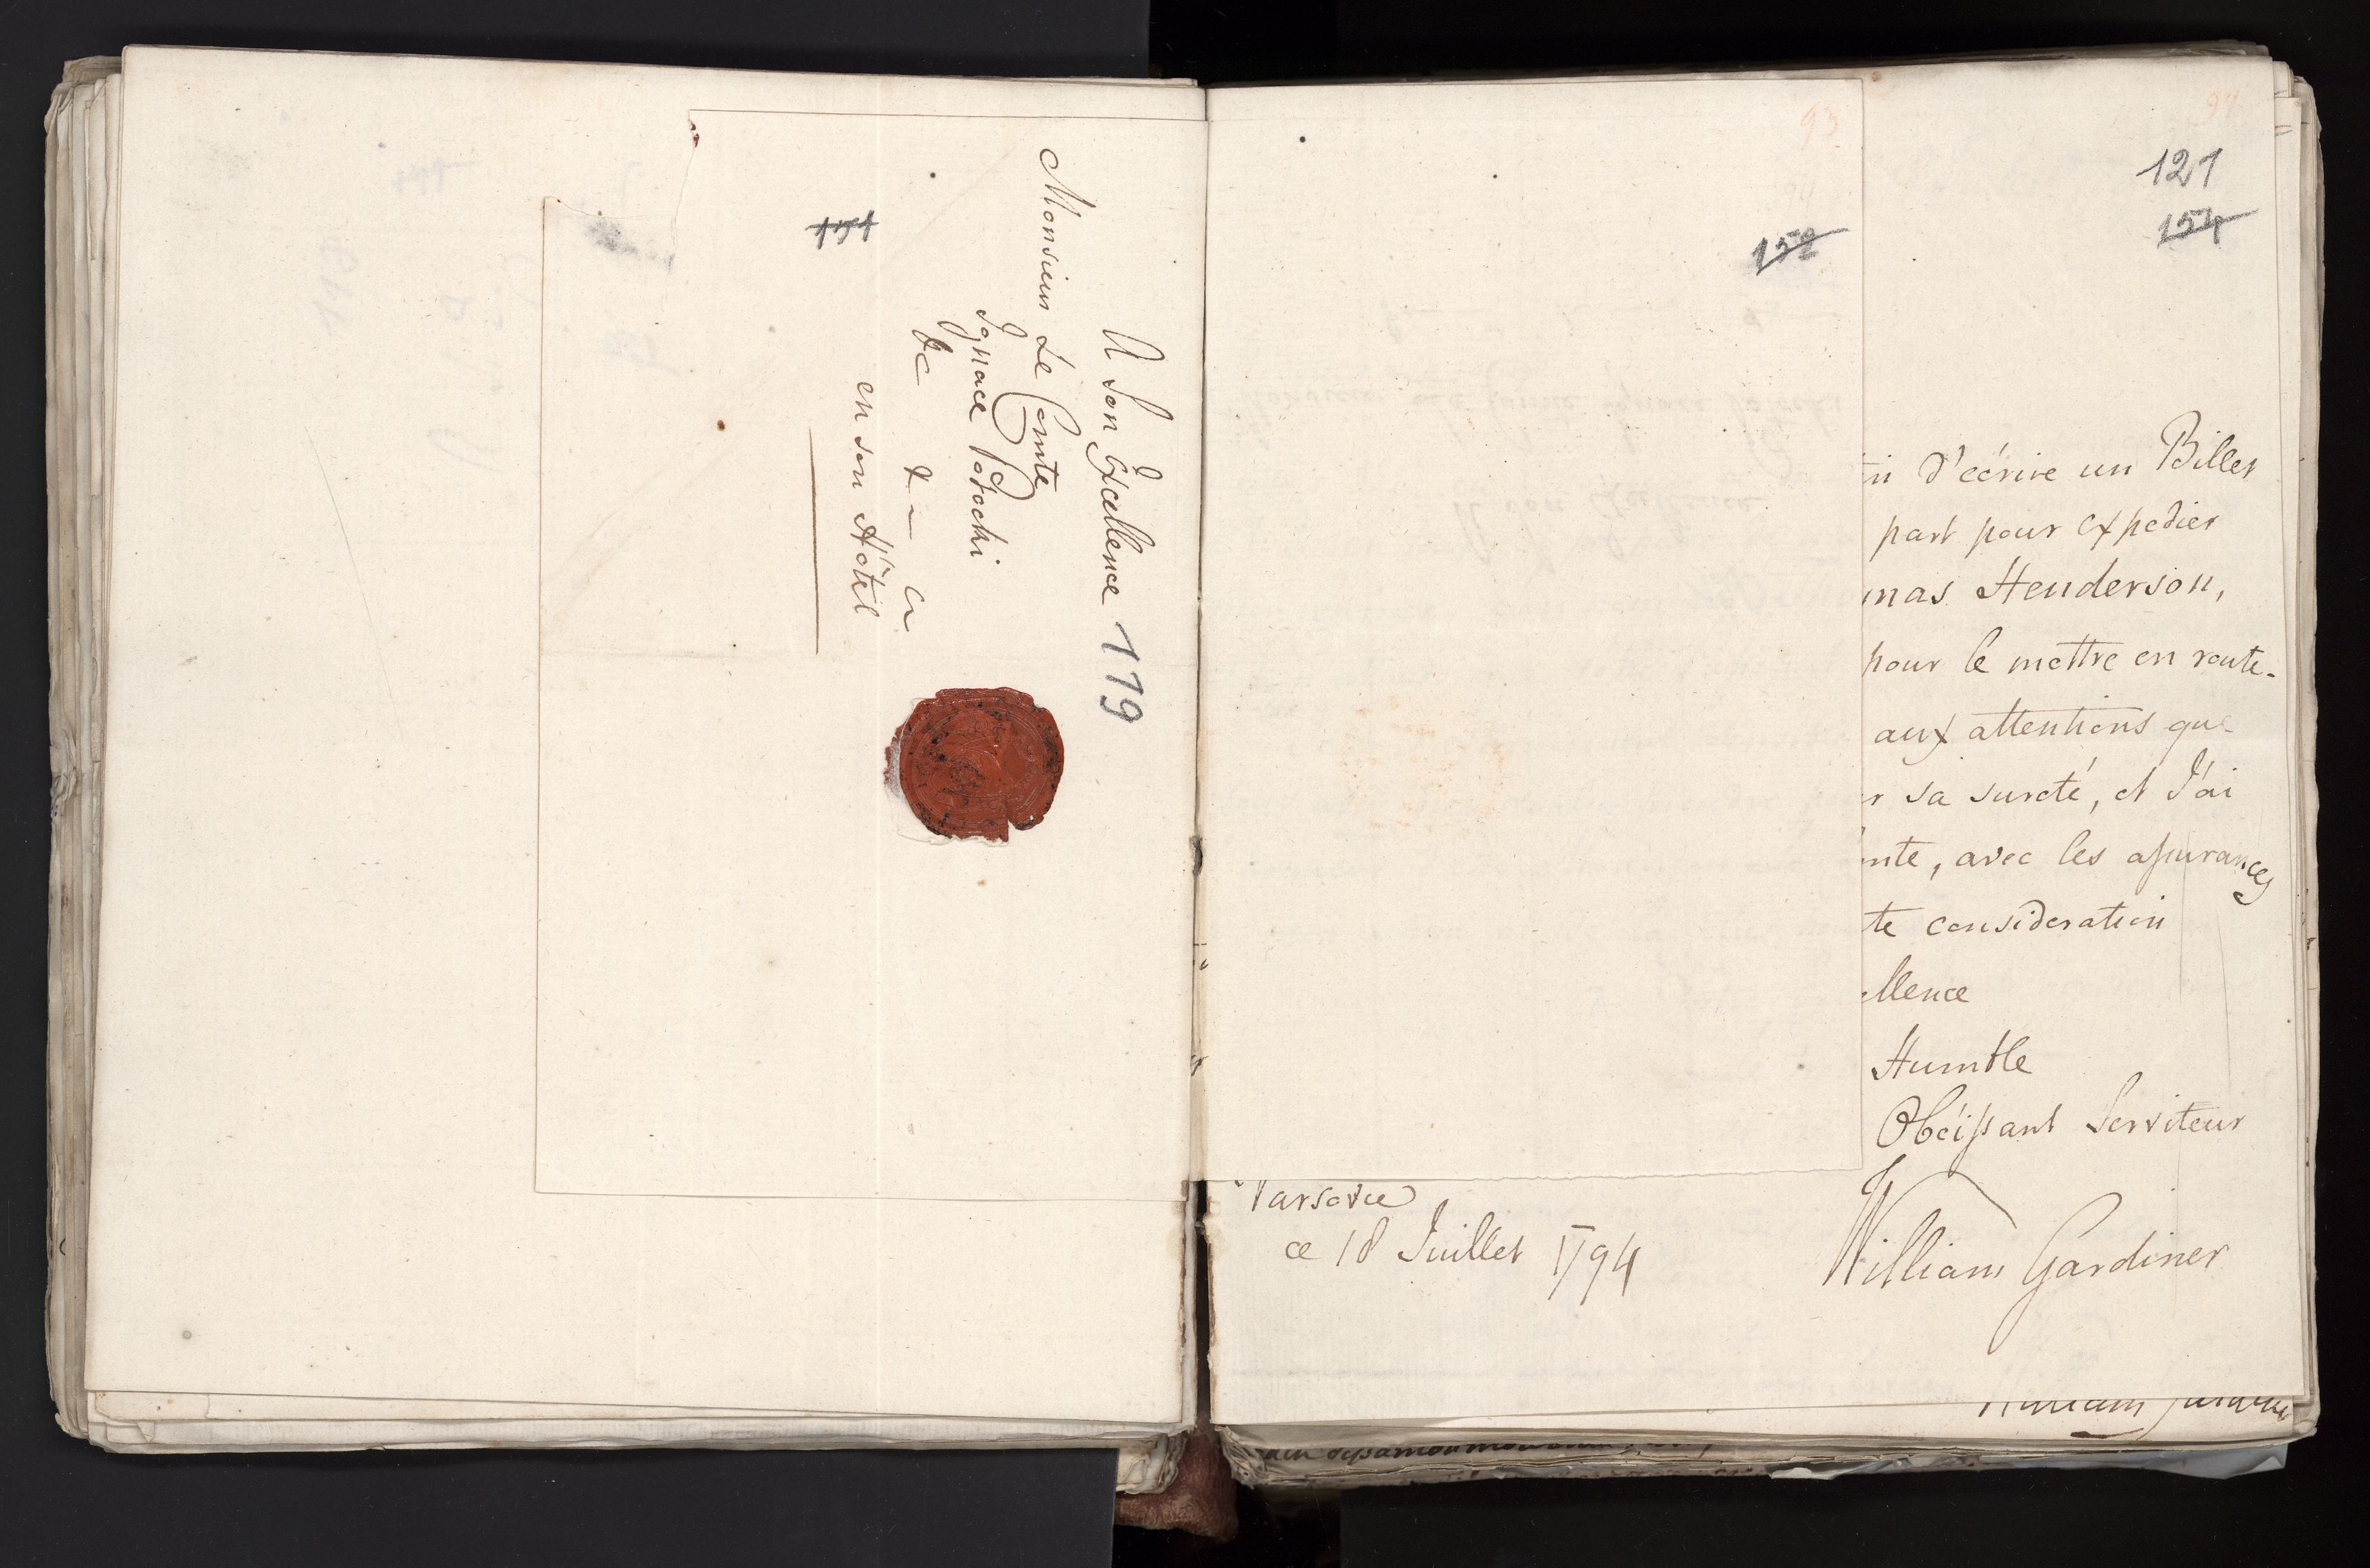 A Son Excellence
Monsieur Le Comte
Ignace Potocki
&c &c &c
en son Hôtel
119
151
93
152
94
121
154
d'écrire un Billet
part pour expedier
mas Henderson,
pour le mettre en route.
aux attentions que
r sa sureté, et J'ai
nte, avec les assurances
te consideration
llence
Humble
Obéissant Serviteur
William Gardiner
Varsovie
ce 18 Juillet 1794
William